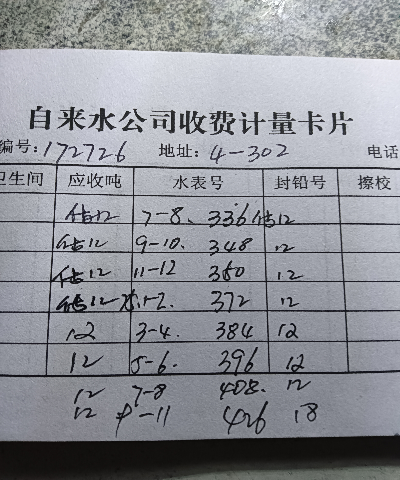 自来水公司收费计量卡片
编号:172726 地址: 4-302 电话
卫生间 应收吨 水表号 封铅号 擦校
估12 7-8. 336 估12
估12 9-10. 348 12
估12 11-12 360 12
估12 1-2. 372 12
12 3-4. 384 12
12 5-6. 396 12
12 7-8 408. 12
12 -11 426 18